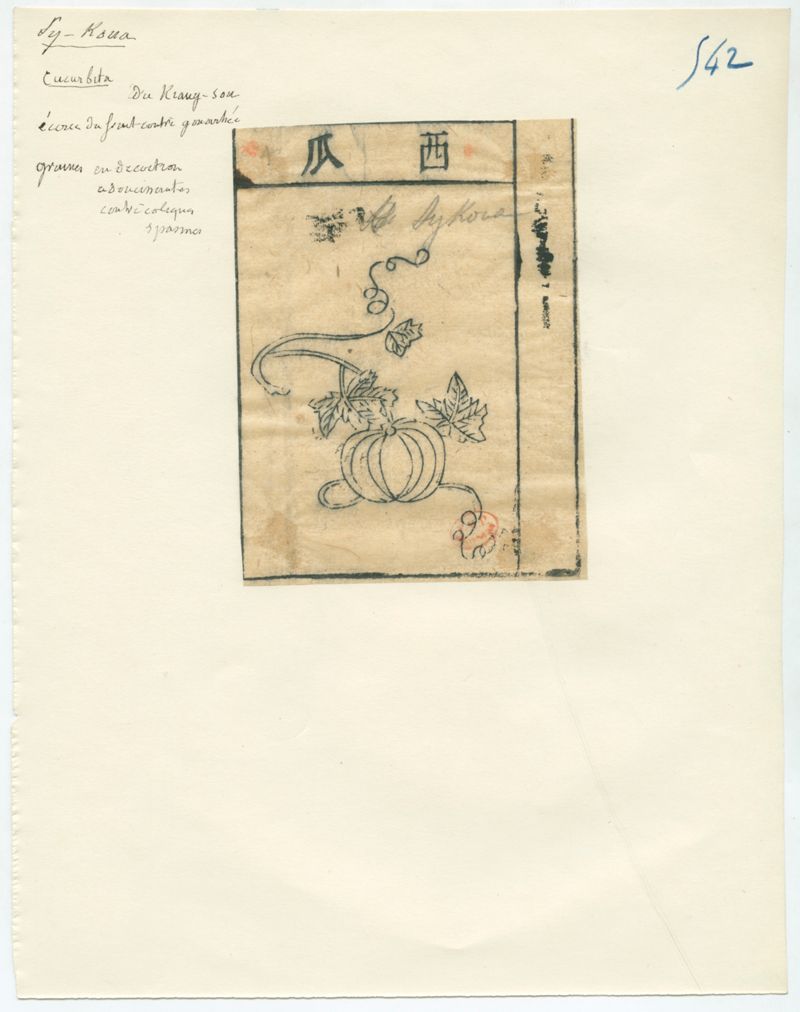 Sy-Koua
542
Cucurbita
Du Kiang-sou
écorce du fruit contre gonorrhée
graines en decoction
adoucissantes
contre coliques
spasmes
西瓜
Sy Koua